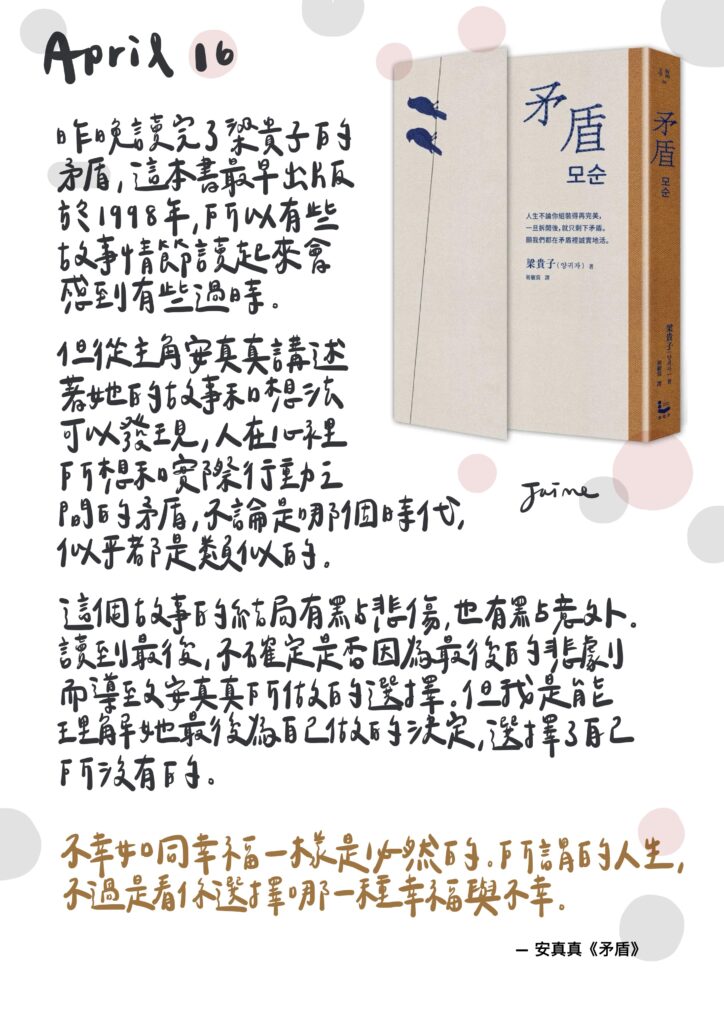 April 16
昨晚讀完了梁貴子的
矛盾，這本書最早出版
於1998年，所以有些
故事情節讀起來會
感到有些過時。
但從主角安真真講述
著她的故事和想法
可以發現，人在心裡
所想和實際行動之
間的矛盾，不論是哪個時代，
似乎都是類似的。
這個故事的結局有點悲傷，也有點意外。
讀到最後，不確定是否因為最後的悲劇
而導致安真真所做的選擇。但我是能
理解她最後為自己做的決定，選擇了自己
所沒有的。
不幸如同幸福一樣是必然的。所謂的人生，
不過是看你選擇哪一種幸福與不幸。
— 安真真《矛盾》
矛盾
모순
人生不論你組裝得再完美，
一旦拆開後，就只剩下矛盾。
願我們都在矛盾裡誠實地活。
梁貴子（양귀자） 著
矛盾
모순
梁貴子（양귀자） 著
Jaime